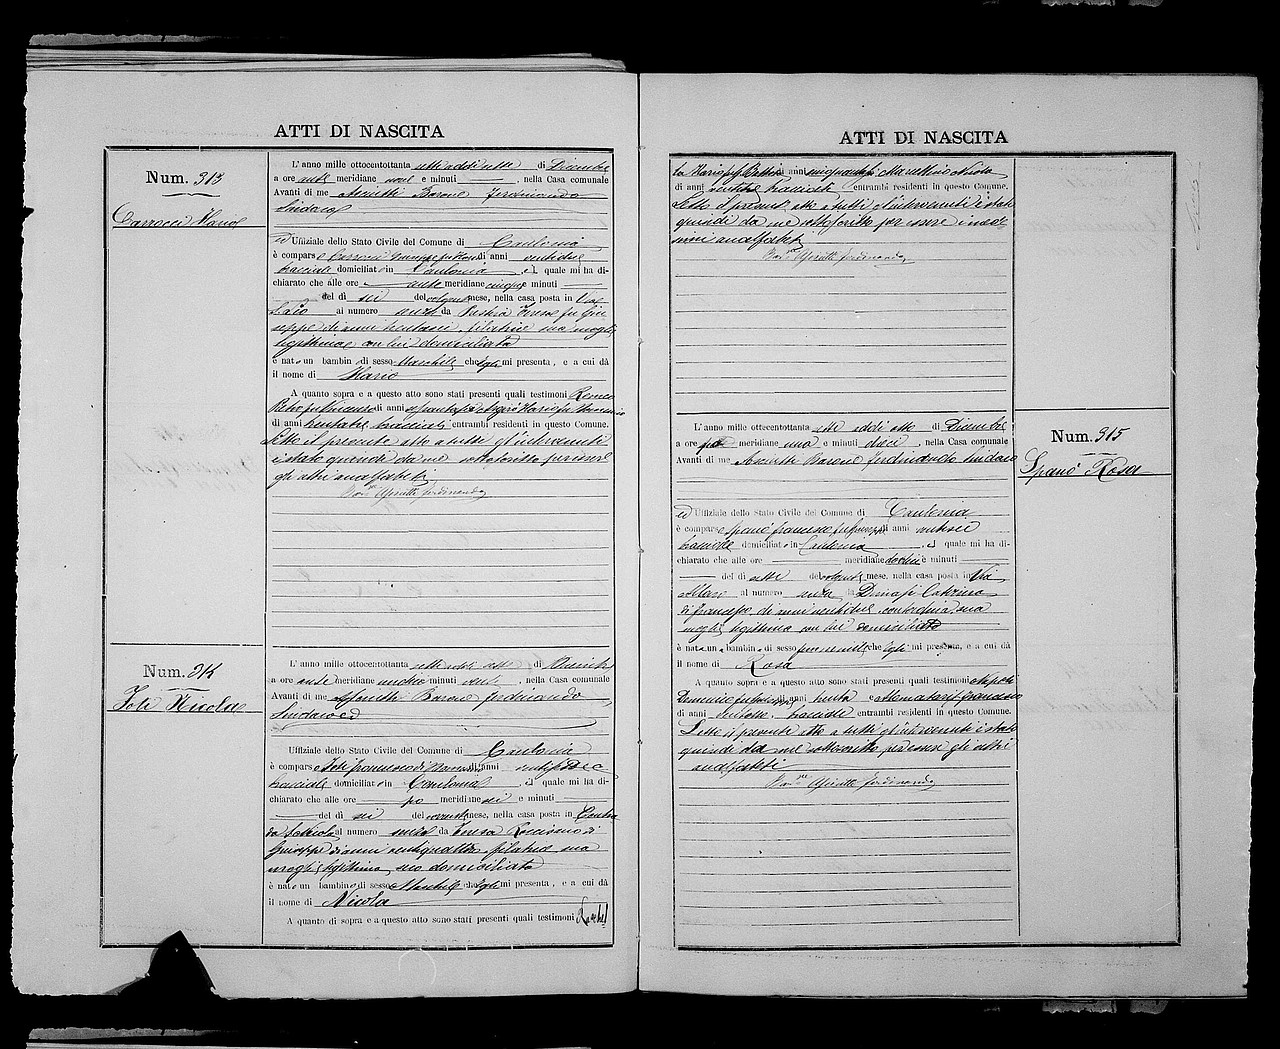 ATTI DI NASCITA
Num. 313
Carrocci Ilario
L'anno mille ottocentottanta sette addì sette di Dicembre
a ore ante meridiane nove e minuti, nella Casa comunale
Avanti di me Asciutti Barone Ferdinando
Sindaco
ed Uffiziale dello Stato Civile del Comune di Caulonia
è comparso Carrocci Giuseppe fu di anni ventidue
bracciale domiciliato in Caulonia, il quale mi ha di-
chiarato che alle ore ante meridiane cinque e minuti
del dì sei del volgente mese, nella casa posta in Via
al numero senza da Teresa fu Giu
seppe di anni trentasei, filatrice sua moglie
legittima con lui domiciliata
è nato un bambino di sesso Maschile che egli mi presenta, e a cui dà
il nome di Ilario
A quanto sopra e a questo atto sono stati presenti quali testimoni Romeo
Pietro fu Vincenzo di anni Ilario fu
di anni bracciali entrambi residenti in questo Comune.
Letto il presente atto a tutti gl'intervenuti
è stato quindi da me sottoscritto per essere
gli altri analfabeti
Bar.ne Asciutti Ferdinando
Num. 314
Joli Nicola
L'anno mille ottocentottanta sette addì otto di Dicembre
a ore ante meridiane undici e minuti venti, nella Casa comunale
Avanti di me Asciutti Barone Ferdinando
Sindaco ed
Uffiziale dello Stato Civile del Comune di Caulonia
è comparso Joli Francesco di di anni
bracciale domiciliato in Caulonia, il quale mi ha di-
chiarato che alle ore po meridiane sei e minuti
del dì sei del corrente mese, nella casa posta in Contra
da al numero senza da Teresa di
Giuseppe di anni ventiquattro, filatrice sua
moglie legittima, seco domiciliata
è nato un bambino di sesso Maschile che egli mi presenta, e a cui dà
il nome di Nicola
A quanto di sopra e a questo atto sono stati presenti quali testimoni
ATTI DI NASCITA
Ilario di anni cinquanta, Marcellino Nicola
di anni bracciali entrambi residenti in questo Comune.
Letto il presente atto a tutti gl'intervenuti è stato
quindi da me sottoscritto per essere i
analfabeti
Bar.ne Asciutti Ferdinando
Num. 315
Spanò Rosa
L'anno mille ottocentottanta sette addì otto di Dicembre
a ore po meridiane una e minuti dieci, nella Casa comunale
Avanti di me Asciutti Barone Ferdinando Sindaco
ed Uffiziale dello Stato Civile del Comune di Caulonia
è comparso Spanò Francesco fu Giuseppe di anni ventisei
bracciale domiciliato in Caulonia, il quale mi ha di-
chiarato che alle ore meridiane dodici e minuti
del dì sette del volgente mese, nella casa posta in Via
al numero senza da Caterina
di Francesco, di anni ventidue, contadina, sua
moglie legittima con lui domiciliata
è nata una bambina di sesso femminile che egli mi presenta, e a cui dà
il nome di Rosa
A quanto sopra e a questo atto sono stati presenti quali testimoni
Domenico fu Giuseppe di anni trenta e Francesco
di anni bracciale entrambi residenti in questo Comune.
Letto il presente atto a tutti gl'intervenuti è stato
quindi da me sottoscritto per essere gli altri
analfabeti
Bar.ne Asciutti Ferdinando